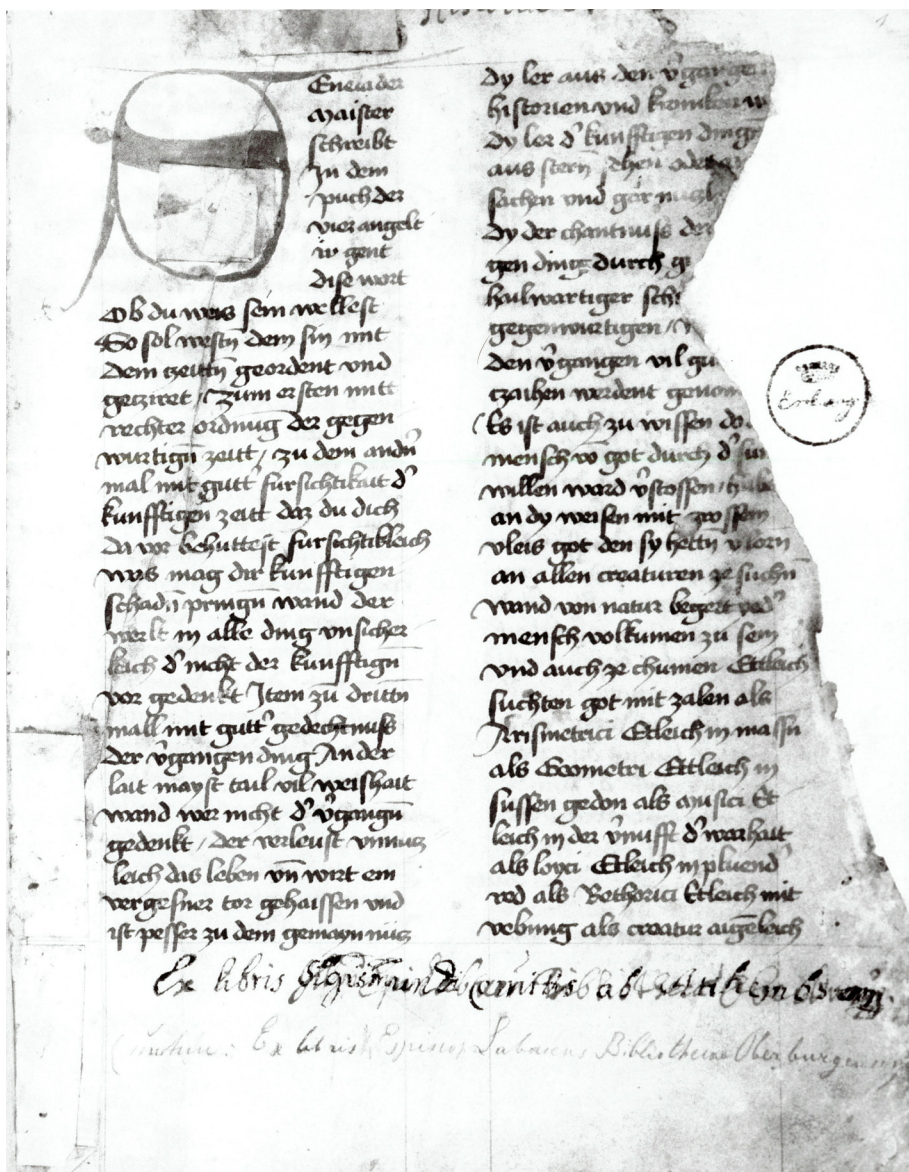 Eneca der
Maister
schreibt
In dem
puch der
vier angelt
dise wort
Ob du weis sein wellest
So sol westu dem sin mit
dem zeittn geordent vnd
getziret / Zum ersten mitt
rechter ordnūg der gegen
wurtigū zeitt / zu dem andn̄
mal mit gutt' fursichtikait d'
kunfftigen zeitt daz du dich
da vor behuttest fursichtikleich
was mag dir kunfftigen
schadn̄ pringn̄ wand der
werlt in alle ding vnsicher
leich d' nicht der kunfftign̄
vor gedenkt Item zu drittn̄
mall mit gutt' gedechtnuss
der v'gangen ding An der
lait mayst tail vil weishait
wand wer nicht d' v'gangn̄
gedenkt / der verleust vnnutz
leich das leben vn̄ wirt ein
vergesner tor gehaissen vnd
ist pesser zu dem gemayn nutz
Dy ler aus den v'gangen
historien vnd kroniken
dy ler d' kunfftigen ding
aus stern̄ sehen oder
sachen vnd gar nuzl
Dy der chantnuss der
gen ding durch g
hailwartiger sch
gegenwurtigen / v
den v'gangen vil gu
tzaihen werdent genom
Es ist auch zu wissen do
mensch vō got durch d' sun
willen ward v'stossen /
an dy weisen mit grossem
vleis got den sy hettn v'lorn
an allen creaturen ze suchn̄
wand von natur begert yed'
mensch volkumen zu sein
vnd auch ze chumen Ettleich
suchten got mit zalen als
Arismetrici Etleich in massn
als Geometri Ettleich in
sussen gedon als musici Et
leich in der v'nufft d' warhait
als loyci Etleich in pluend'
red als Rethorici Etleich mit
vebung als creatur augēleich
Ex libris Sigismundi Comitis ab
Ex libris Episcop. Labacens Bibliothecae Oberburgensis